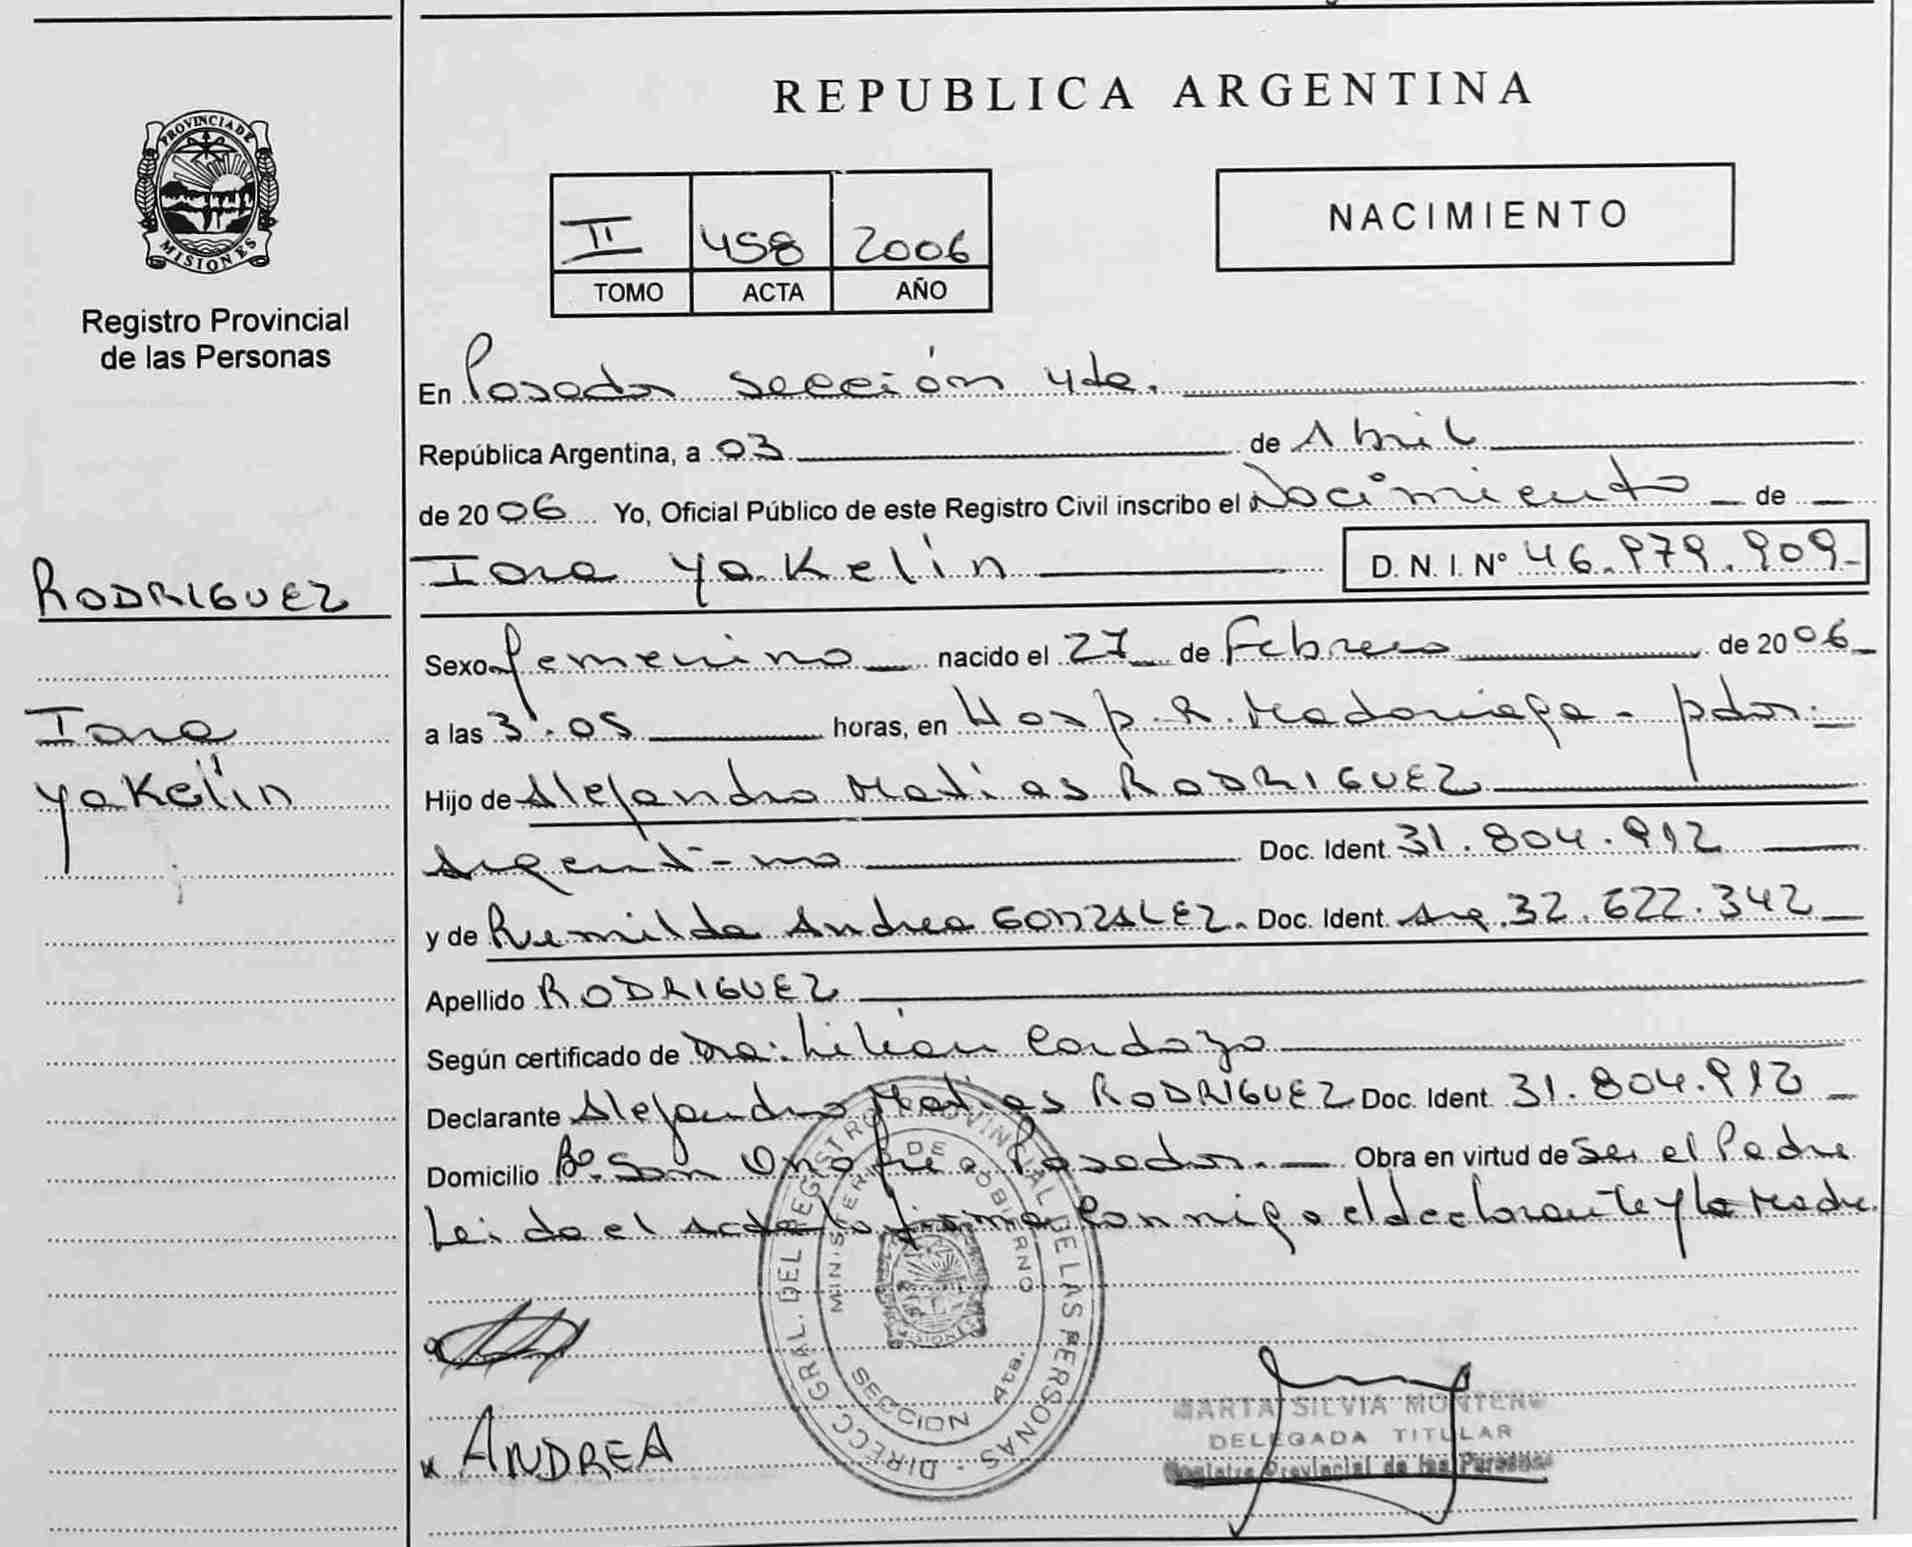 REPUBLICA ARGENTINA
PROVINCIA DE
MISIONES
Registro Provincial
de las Personas
II 458 2006
TOMO ACTA AÑO
NACIMIENTO
En Posadas sección 4ta.
República Argentina, a 03 de Abril
de 2006 Yo, Oficial Público de este Registro Civil inscribo el Nacimiento de
RODRIGUEZ
Iara
Yakelin
Iara Yakelin D. N. I. Nº 46.979.909
Sexo femenino nacido el 27 de Febrero de 2006
a las 3.05 horas, en Hosp. R. Madariaga - pdas.
Hijo de Alejandro Matias RODRIGUEZ
Argentino Doc. Ident. 31.804.912
y de Remilda Andrea GONZALEZ. Doc. Ident. Arg. 32.622.342
Apellido RODRIGUEZ
Según certificado de Dra. Lilián Cardozo
Declarante Alejandro Matias RODRIGUEZ Doc. Ident. 31.804.912
Domicilio Bº. San Onofre Posadas. Obra en virtud de ser el Padre
Leida el Acta la firma Conmigo el declarante y la Madre.
DIRECC. GRAL. DEL REGISTRO PROVINCIAL DE LAS PERSONAS
MINISTERIO DE GOBIERNO
MISIONES
SECCION 4ta.
x ANDREA
MARTA SILVIA MONTERO
DELEGADA TITULAR
Registro Provincial de las Personas